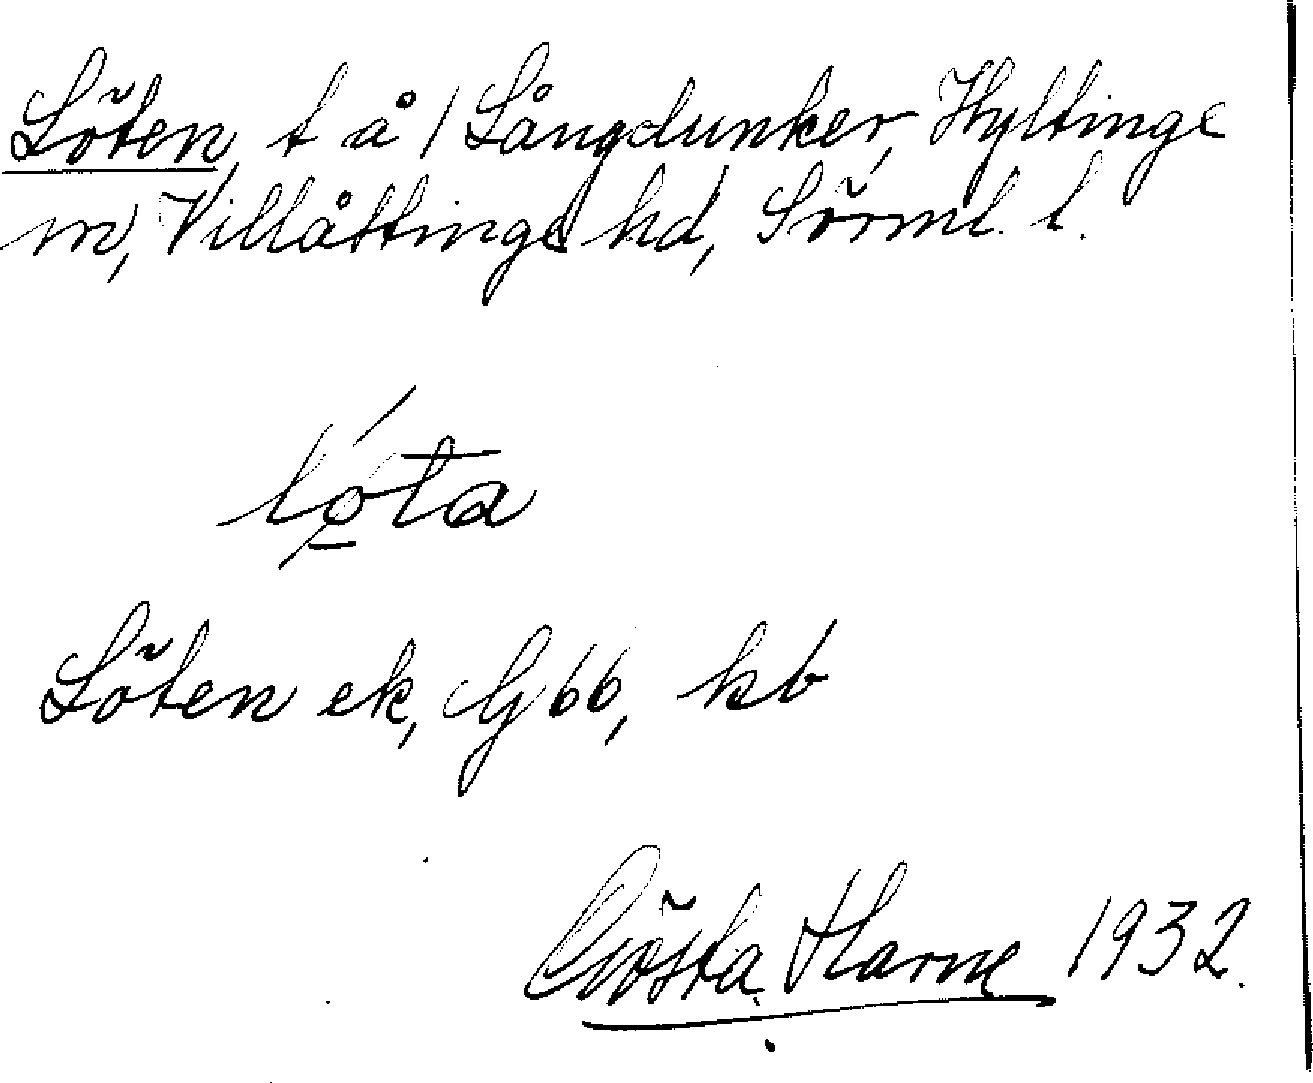 Löten, t å / Långdunker, Hyltinge
sn, Villåttinge hd, Sörml. l.
lǿ̱t̄a
Löten ek, G 66, kb
Gösta Harne 1932.